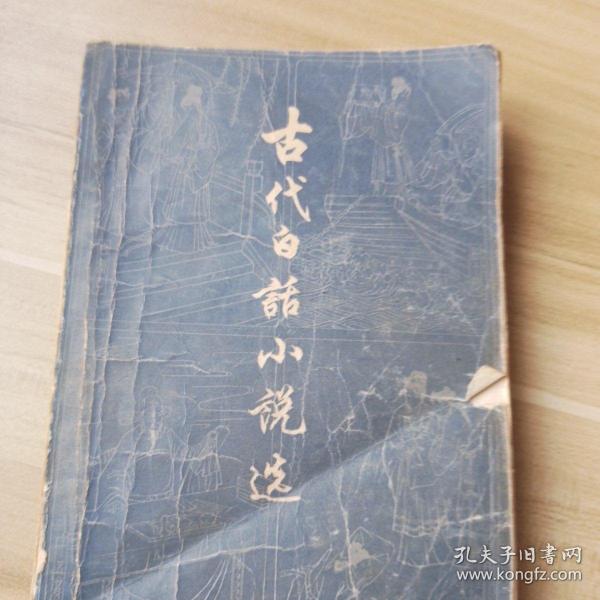 古代白話小説选
孔夫子旧書网
www.kongfz.com